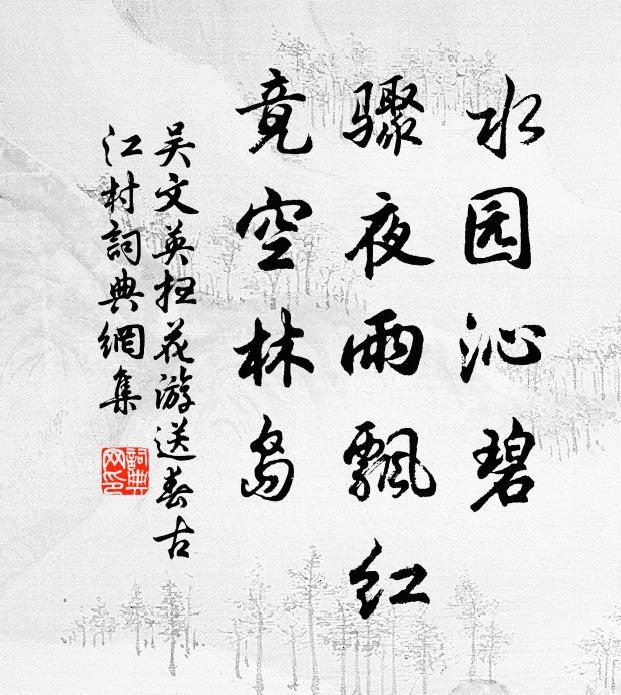 水园沁碧
骤夜雨飘红
竟空林岛
吴文英扫花游送春古
江村詞典網集
詞典
网印